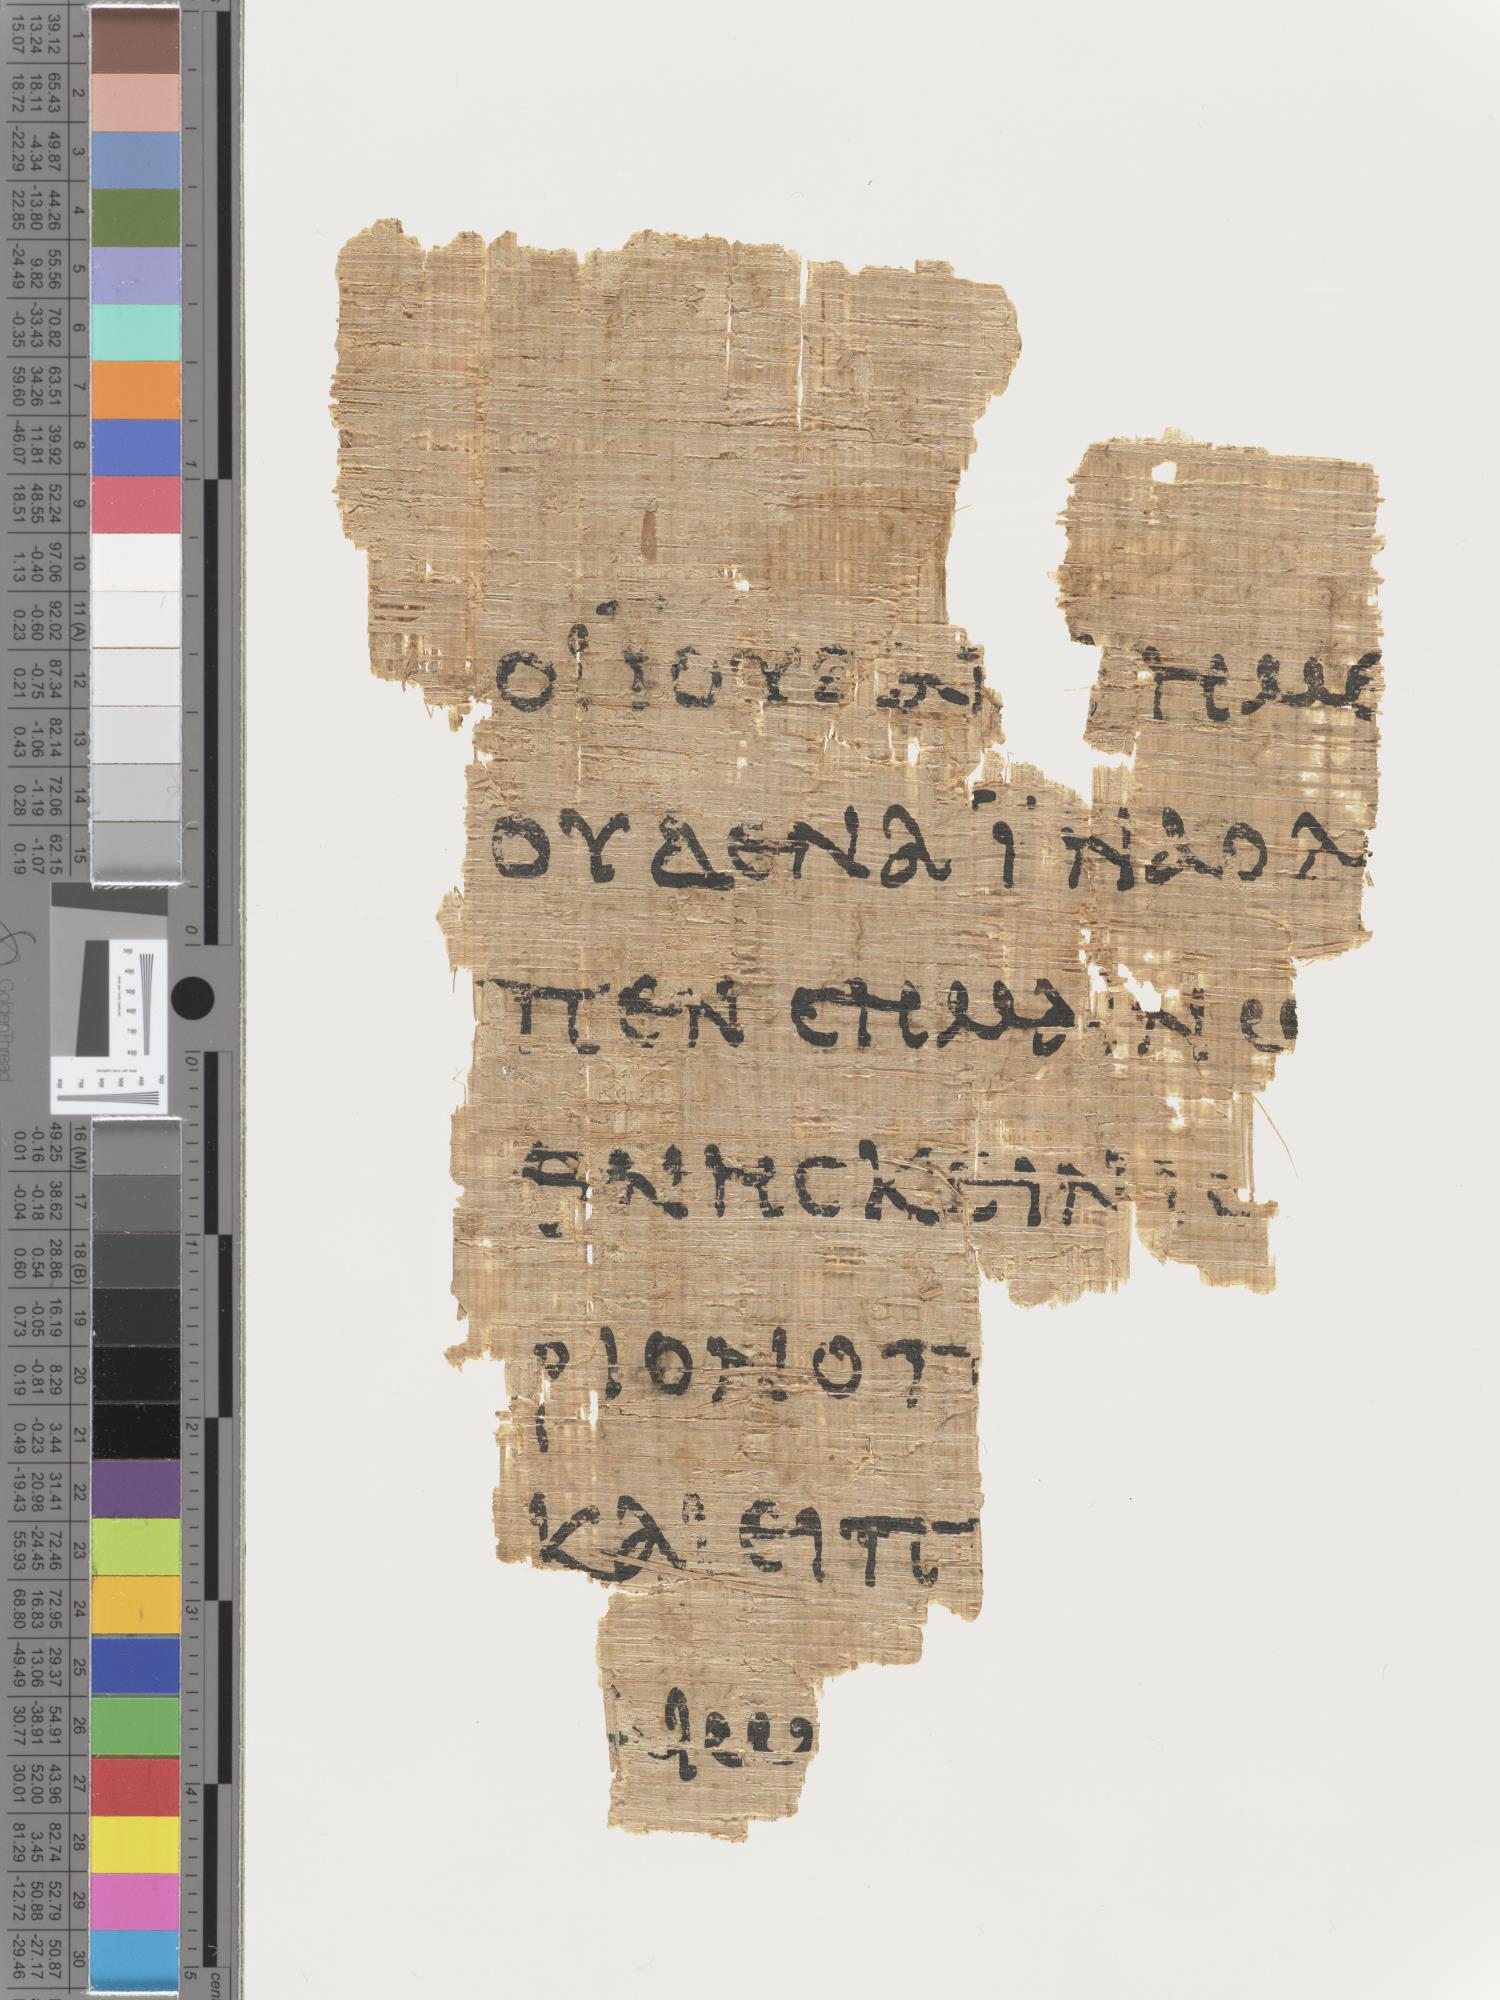 1 2 3 4 5 6 7 8 9 10 11 (A) 12 13 14 15
39.12 65.43 49.87 44.26 55.56 70.82 63.51 39.92 52.24 97.06 92.02 87.34 82.14 72.06 62.15
13.24 18.11 -4.34 -13.80 9.82 -33.43 34.26 11.81 48.55 -0.40 -0.60 -0.75 -1.06 -1.19 -1.07
15.07 18.72 -22.29 22.85 -24.49 -0.35 59.60 -46.07 18.51 1.13 0.23 0.21 0.43 0.28 0.19
1 0
GoldenThread
16 (M) 17 18 (B) 19 20 21 22 23 24 25 26 27 28 29 30
49.25 38.62 28.86 16.19 8.29 3.44 31.41 72.46 72.95 29.37 54.91 43.96 82.74 52.79 50.87
-0.16 -0.18 0.54 -0.05 -0.81 -0.23 20.98 -24.45 16.83 13.06 -38.91 52.00 3.45 50.88 -27.17
0.01 -0.04 0.60 0.73 0.19 0.49 -19.43 55.93 68.80 -49.49 30.77 30.01 81.29 -12.72 -29.46
0 1 2 3 4 5
ΟΙ ΪΟΥΔΑΙ ΗΜΕ
ΟΥΔΕΝΑ ΪΝΑ Ο Λ
ΠΕΝ ϹΗΜΑΙΝΩ
ΘΝΗϹΚΕΙΝ ΙϹ
ΡΙΟΝ Ο Π
ΚΑΙ ΕΙΠ
ΑΙΩ